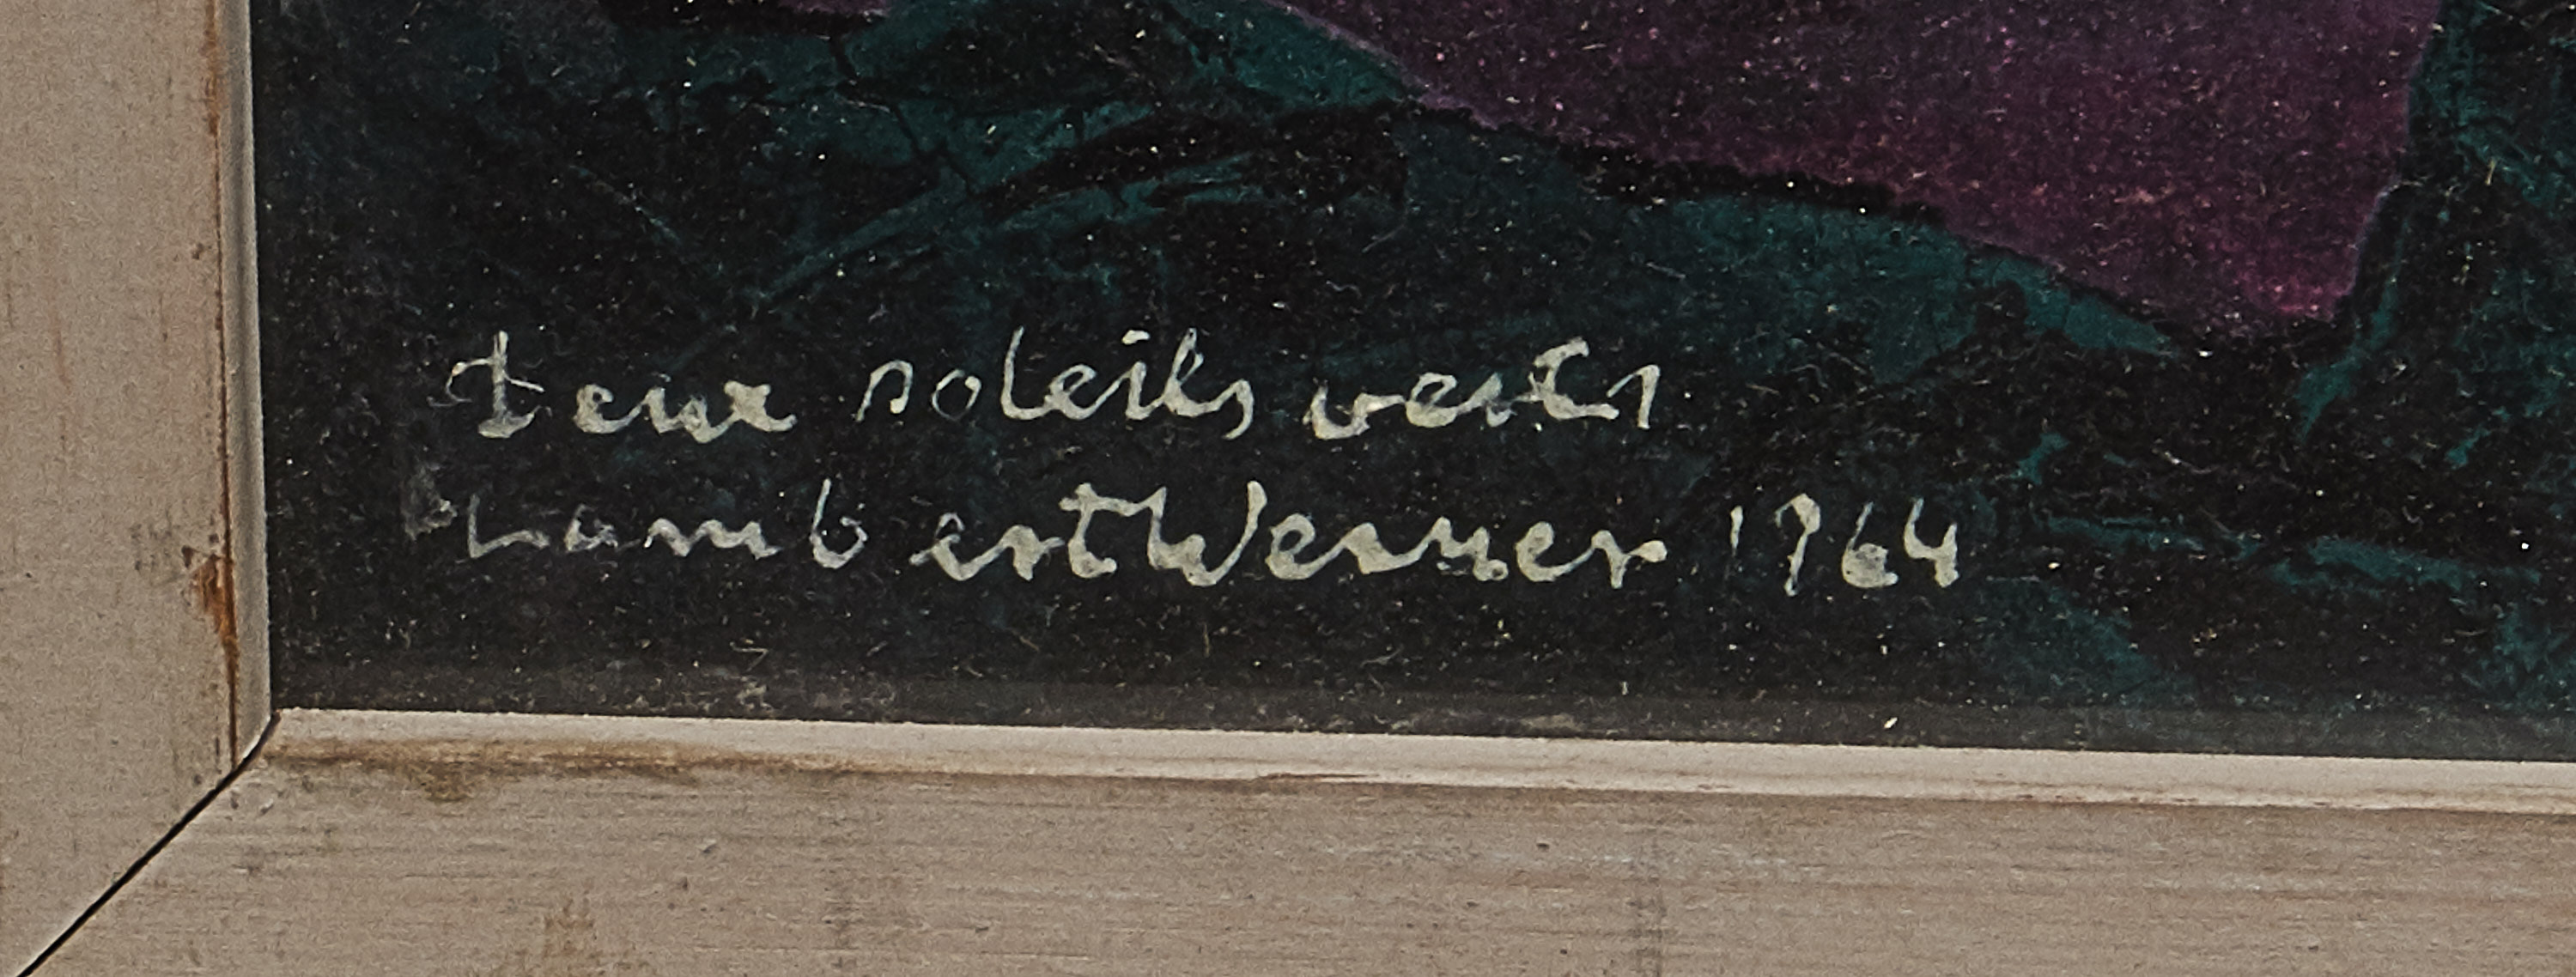 deux soleils verts
Lambert Werner 1964